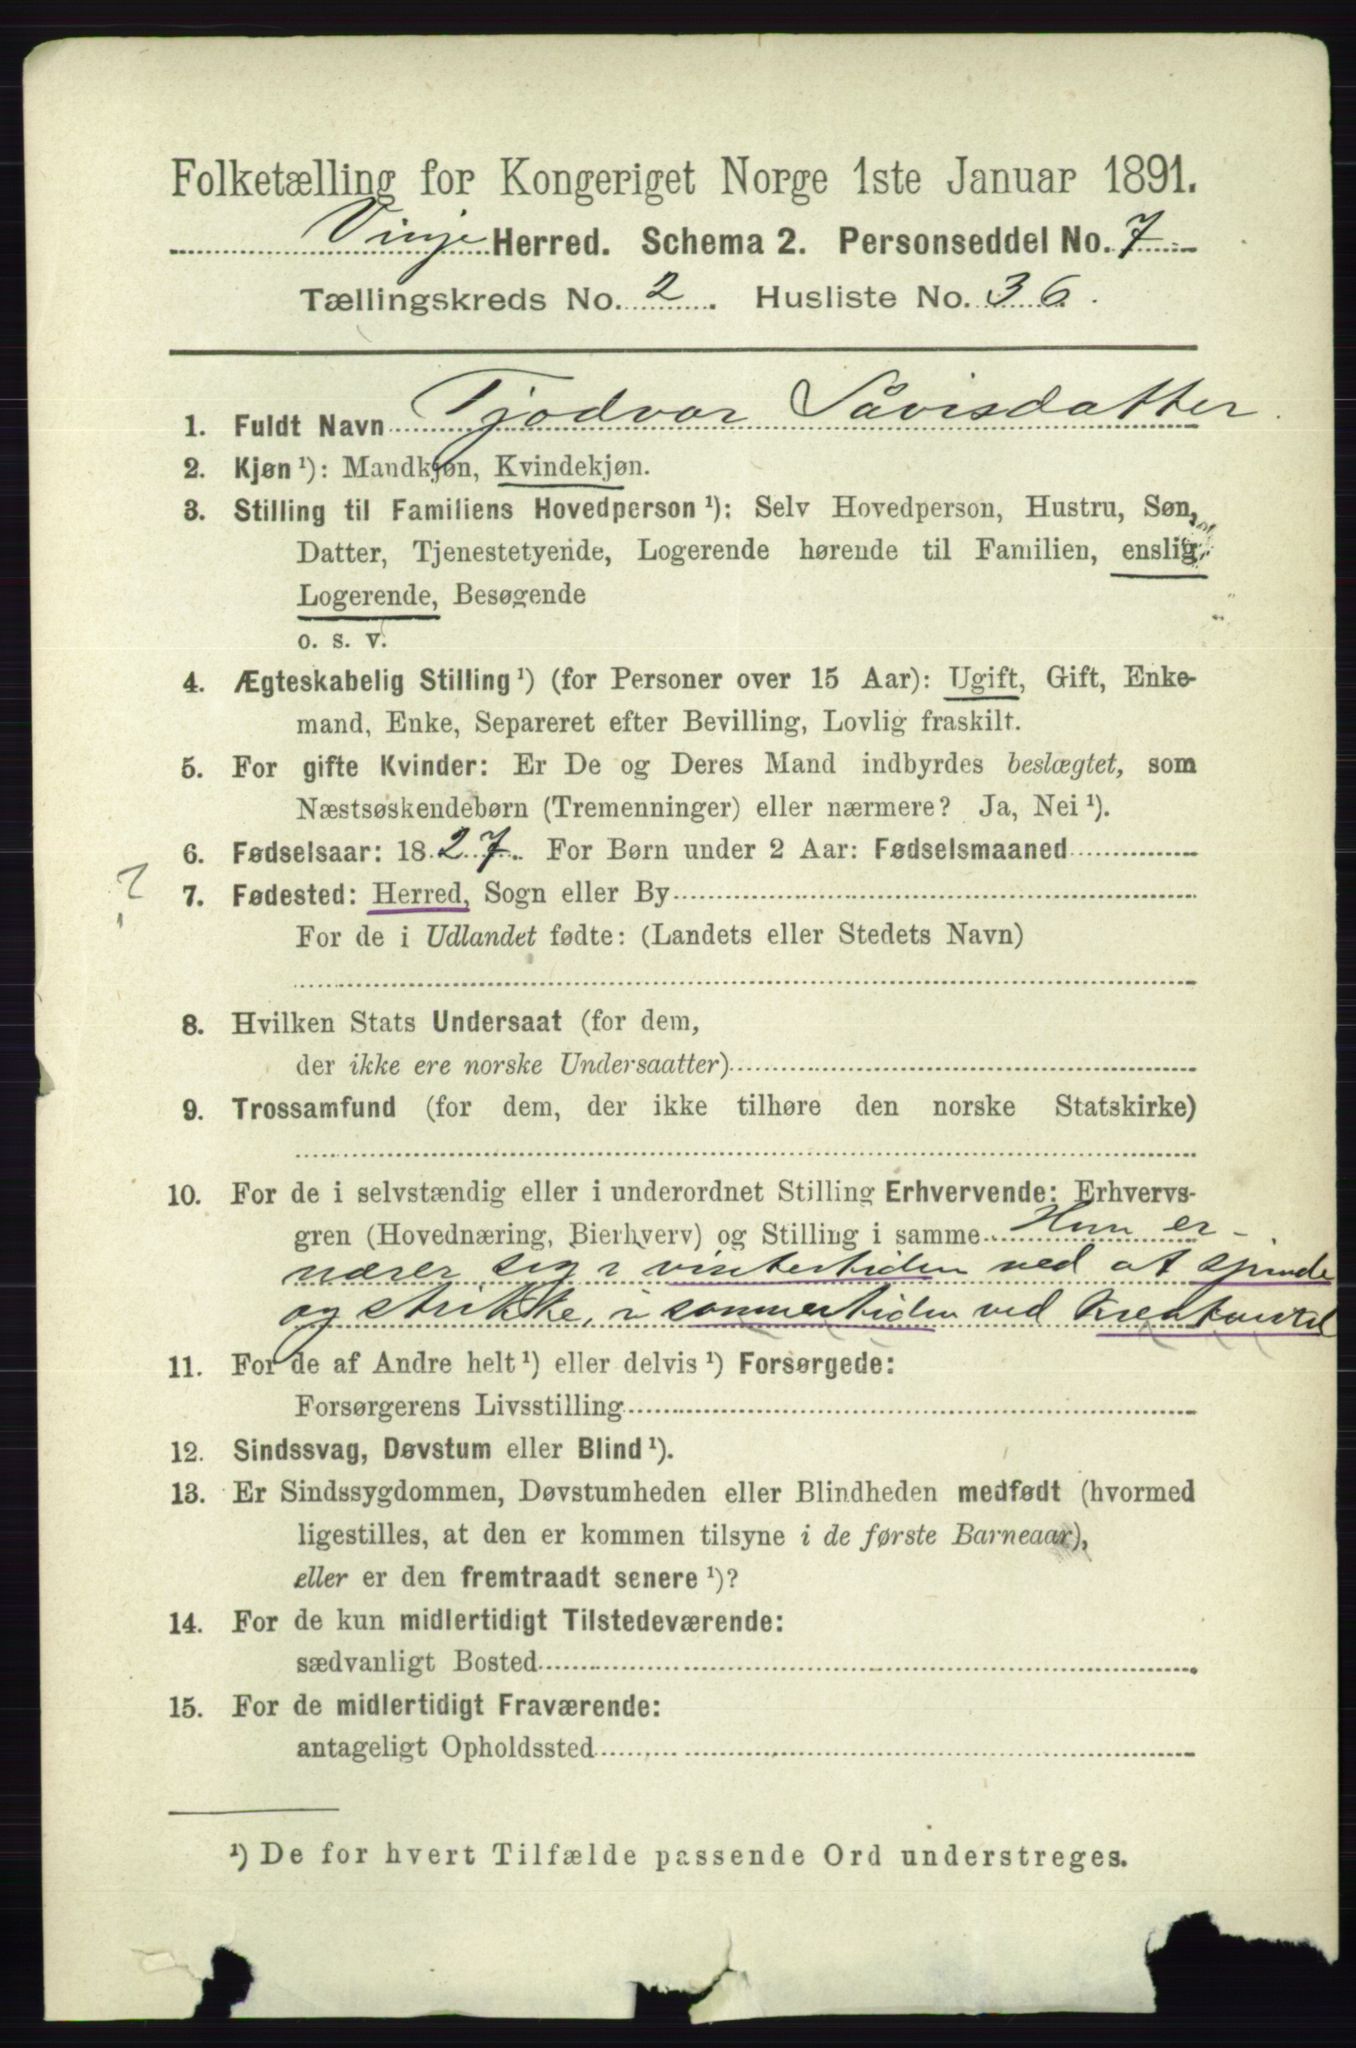 Folketælling for Kongeriget Norge 1ste Januar 1891.
Vinje Herred. Schema 2. Personseddel No. 7
Tællingskreds No. 2. Husliste No. 36.
1. Fuldt Navn Tjodvor Såvisdatter
2. Kjøn ¹): Mandkjøn, Kvindekjøn.
3. Stilling til Familiens Hovedperson ¹): Selv Hovedperson, Hustru, Søn,
Datter, Tjenestetyende, Logerende hørende til Familien, enslig
Logerende, Besøgende
o. s. v.
4. Ægteskabelig Stilling ¹) (for Personer over 15 Aar): Ugift, Gift, Enke-
mand, Enke, Separeret efter Bevilling, Lovlig fraskilt.
5. For gifte Kvinder: Er De og Deres Mand indbyrdes beslægtet, som
Næstsøskendebørn (Tremenninger) eller nærmere? Ja, Nei ¹).
6. Fødselsaar: 1827. For Børn under 2 Aar: Fødselsmaaned
? 7. Fødested: Herred, Sogn eller By
For de i Udlandet fødte: (Landets eller Stedets Navn)
8. Hvilken Stats Undersaat (for dem,
der ikke ere norske Undersaatter)
9. Trossamfund (for dem, der ikke tilhøre den norske Statskirke)
10. For de i selvstændig eller i underordnet Stilling Erhvervende: Erhvervs-
gren (Hovednæring, Bierhverv) og Stilling i samme Hun er-
nærer sig i vintertiden ved at spinde
og strikke, i sommertiden ved Kreaturstel
11. For de af Andre helt ¹) eller delvis ¹) Forsørgede:
Forsørgerens Livsstilling
12. Sindssvag, Døvstum eller Blind ¹).
13. Er Sindssygdommen, Døvstumheden eller Blindheden medfødt (hvormed
ligestilles, at den er kommen tilsyne i de første Barneaar),
eller er den fremtraadt senere ¹)?
14. For de kun midlertidigt Tilstedeværende:
sædvanligt Bosted
15. For de midlertidigt Fraværende:
antageligt Opholdssted
¹) De for hvert Tilfælde passende Ord understreges.